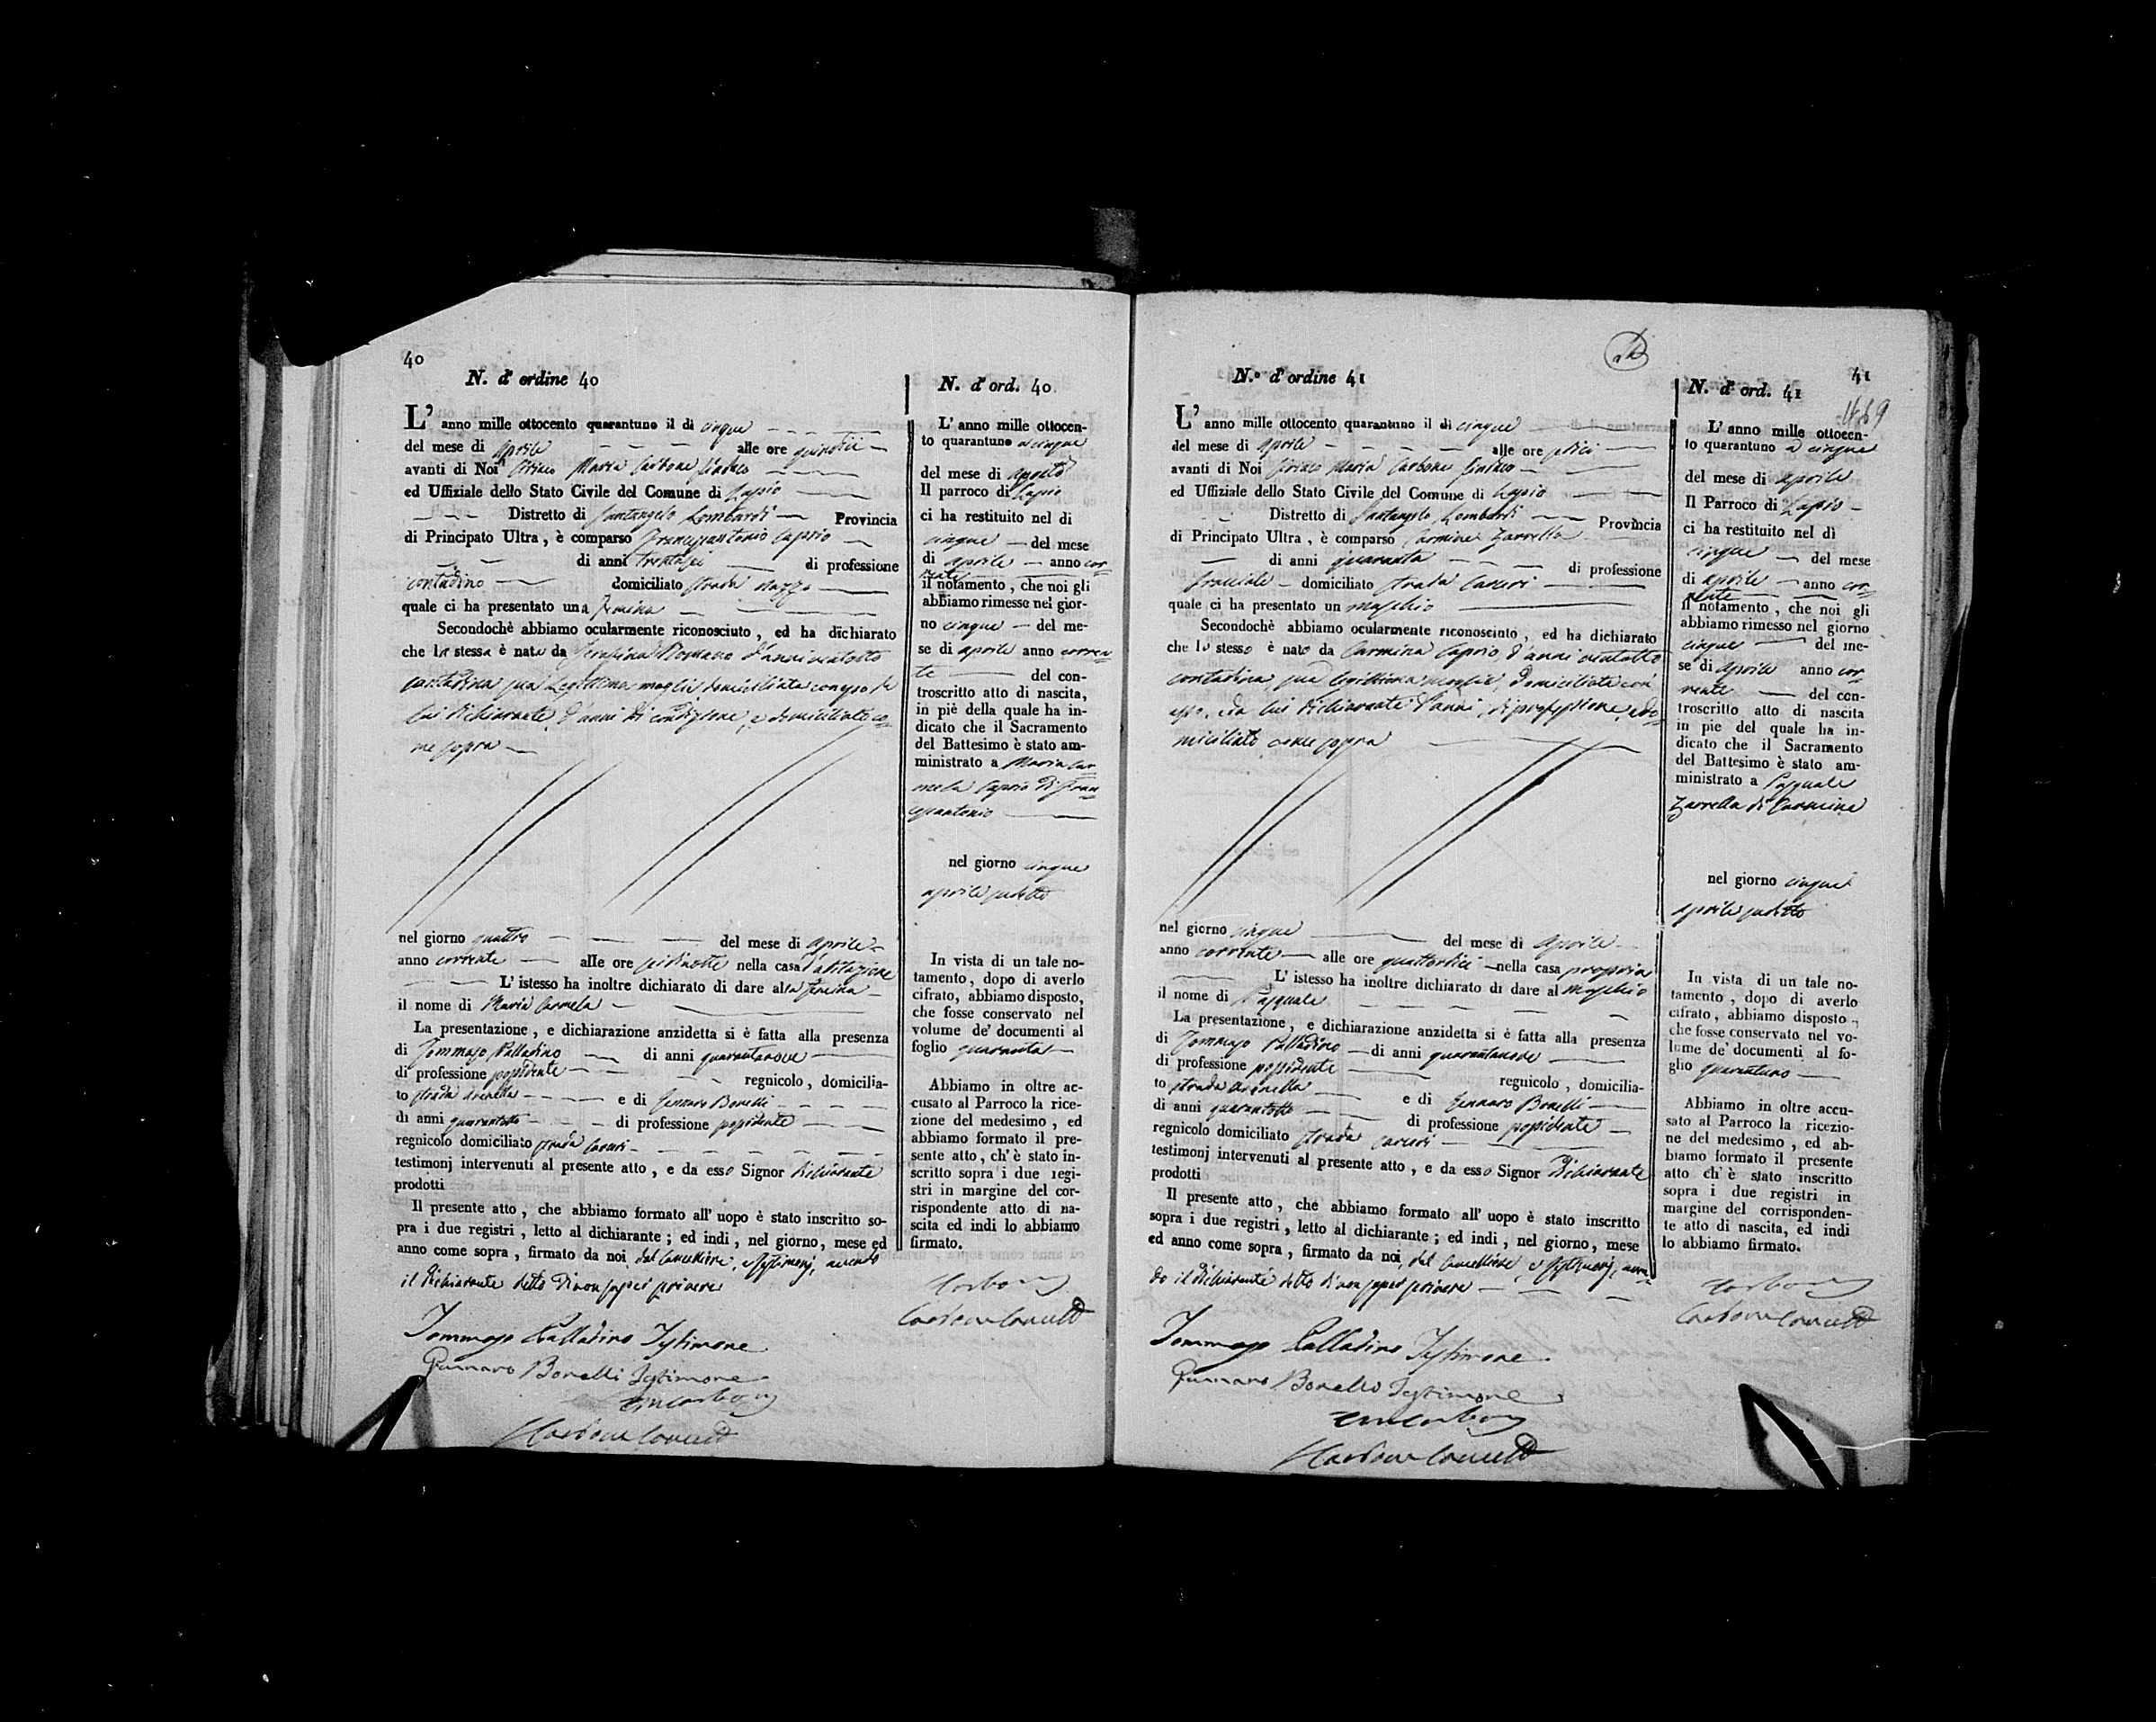 40
N. d' ordine 40
L' anno mille ottocento quarantuno il di cinque
del mese di Aprile alle ore quindici
avanti di Noi Ciriaco Maria Carbone Sindaco
ed Uffiziale dello Stato Civile del Comune di Lapio
Distretto di Santangelo Lombardi Provincia
di Principato Ultra, è comparso Francescantonio Caprio
di anni trentasei di professione
contadino domiciliato strada
quale ci ha presentato una femina
Secondochè abbiamo ocularmente riconosciuto, ed ha dichiarato
che la stessa è nata da Serafina Romano d'anni ventotto
contadina sua legittima moglie domiciliata con esso e da
lui dichiarante, d'anni di condizione, e domiciliato co-
me sopra
nel giorno quattro del mese di Aprile
anno corrente alle ore nella casa d'abitazione
L' istesso ha inoltre dichiarato di dare alla femina
il nome di Maria Carmela
La presentazione, e dichiarazione anzidetta si è fatta alla presenza
di Tommaso Palladino di anni quarantanove
di professione possidente regnicolo, domicilia-
to strada e di Gennaro Bonelli
di anni quarantotto di professione possidente
regnicolo domiciliato strada Carceri
testimonj intervenuti al presente atto, e da esso Signor dichiarante
prodotti
Il presente atto, che abbiamo formato all' uopo è stato inscritto so-
pra i due registri, letto al dichiarante; ed indi, nel giorno, mese ed
anno come sopra, firmato da noi, dal Cancelliere, e testimonj, avendo
il dichiarante detto di non saper scrivere
Tommaso Palladino Testimone
Gennaro Bonelli Testimone
Carbone
Carbone Cancell
N. d' ord. 40
L' anno mille ottocen-
to quarantuno a cinque
del mese di Aprile
Il parroco di Lapio
ci ha restituito nel di
cinque del mese
di aprile anno cor-
rente
il notamento, che noi gli
abbiamo rimesso nel gior-
no cinque del me-
se di aprile anno corren-
te del con-
troscritto atto di nascita,
in piè della quale ha in-
dicato che il Sacramento
del Battesimo è stato am-
ministrato a Maria Car-
mela Caprio di Fran-
cescantonio
nel giorno cinque
aprile sudetto
In vista di un tale no-
tamento, dopo di averlo
cifrato, abbiamo disposto,
che fosse conservato nel
volume de' documenti al
foglio quaranta
Abbiamo in oltre ac-
cusato al Parroco la rice-
zione del medesimo, ed
abbiamo formato il pre-
sente atto, ch' è stato in-
scritto sopra i due regi-
stri in margine del cor-
rispondente atto di na-
scita ed indi lo abbiamo
firmato.
Carbone
Carbone Cancell
N.º d' ordine 41
L' anno mille ottocento quarantuno il di cinque
del mese di Aprile alle ore sedici
avanti di Noi Ciriaco Maria Carbone Sindaco
ed Uffiziale dello Stato Civile del Comune di Lapio
Distretto di Santangelo Lombardi Provincia
di Principato Ultra, è comparso Carmine Zarrella
di anni quaranta di professione
bracciale domiciliato strada Carceri
quale ci ha presentato un maschio
Secondochè abbiamo ocularmente riconosciuto, ed ha dichiarato
che lo stesso è nato da Carmina Caprio d'anni ventotto
contadina, sua legittima moglie, domiciliata con
esso, e da lui dichiarante d'anni, di professione, e do-
miciliato come sopra
nel giorno cinque del mese di Aprile
anno corrente alle ore quattordici nella casa propria
L' istesso ha inoltre dichiarato di dare al maschio
il nome di Pasquale
La presentazione, e dichiarazione anzidetta si è fatta alla presenza
di Tommaso Palladino di anni quarantanove
di professione possidente regnicolo, domicilia-
to strada e di Gennaro Bonelli
di anni quarantotto di professione possidente
regnicolo domiciliato strada carceri
testimonj intervenuti al presente atto, e da esso Signor dichiarante
prodotti
Il presente atto, che abbiamo formato all' uopo è stato inscritto
sopra i due registri, letto al dichiarante; ed indi, nel giorno, mese
ed anno come sopra, firmato da noi, dal Cancelliere, e testimonj, aven-
do il dichiarante detto di non saper scrivere
Tommaso Palladino Testimone
Gennaro Bonelli Testimone
Carbone
Carbone Cancell
41
N. d' ord. 41
L' anno mille ottocen-
to quarantuno a cinque
del mese di Aprile
Il Parroco di Lapio
ci ha restituito nel dì
cinque del mese
di aprile anno cor-
rente
il notamento, che noi gli
abbiamo rimesso nel giorno
cinque del me-
se di Aprile anno cor-
rente del con-
troscritto atto di nascita
in pie del quale ha in-
dicato che il Sacramento
del Battesimo è stato am-
ministrato a Pasquale
Zarrella di Carmine
nel giorno cinque
aprile sudetto
In vista di un tale no-
tamento, dopo di averlo
cifrato, abbiamo disposto,
che fosse conservato nel vo-
lume de' documenti al fo-
glio quarantuno
Abbiamo in oltre accu-
sato al Parroco la ricezio-
ne del medesimo, ed ab-
biamo formato il presente
atto ch' è stato inscritto
sopra i due registri in
margine del corrisponden-
te atto di nascita, ed indi
lo abbiamo firmato.
Carbone
Carbone Cancell